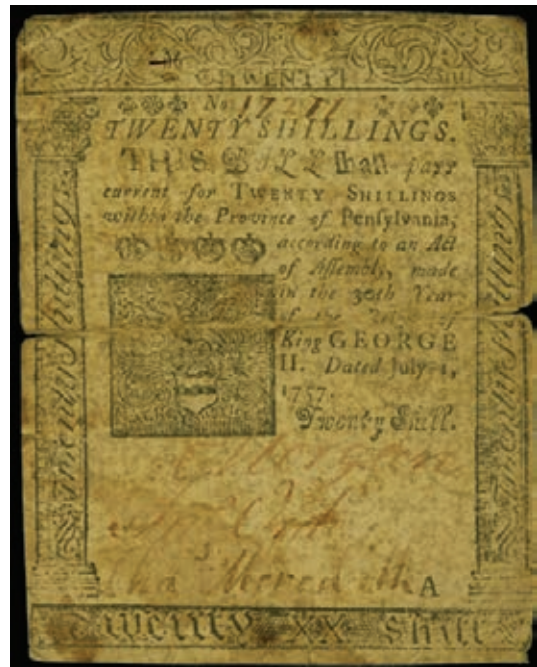 TWENTY
No 17211
TWENTY SHILLINGS.
THIS BILL shall pass
current for TWENTY SHILLINGS
within the Province of Pensylvania,
according to an Act
of Assembly, made
in the 30th Year
of the Reign of
King GEORGE
II. Dated July 1,
1757.
Twenty Shill.
Twenty Shillings
Twenty Shillings
Meredith A
Twenty XX Shill